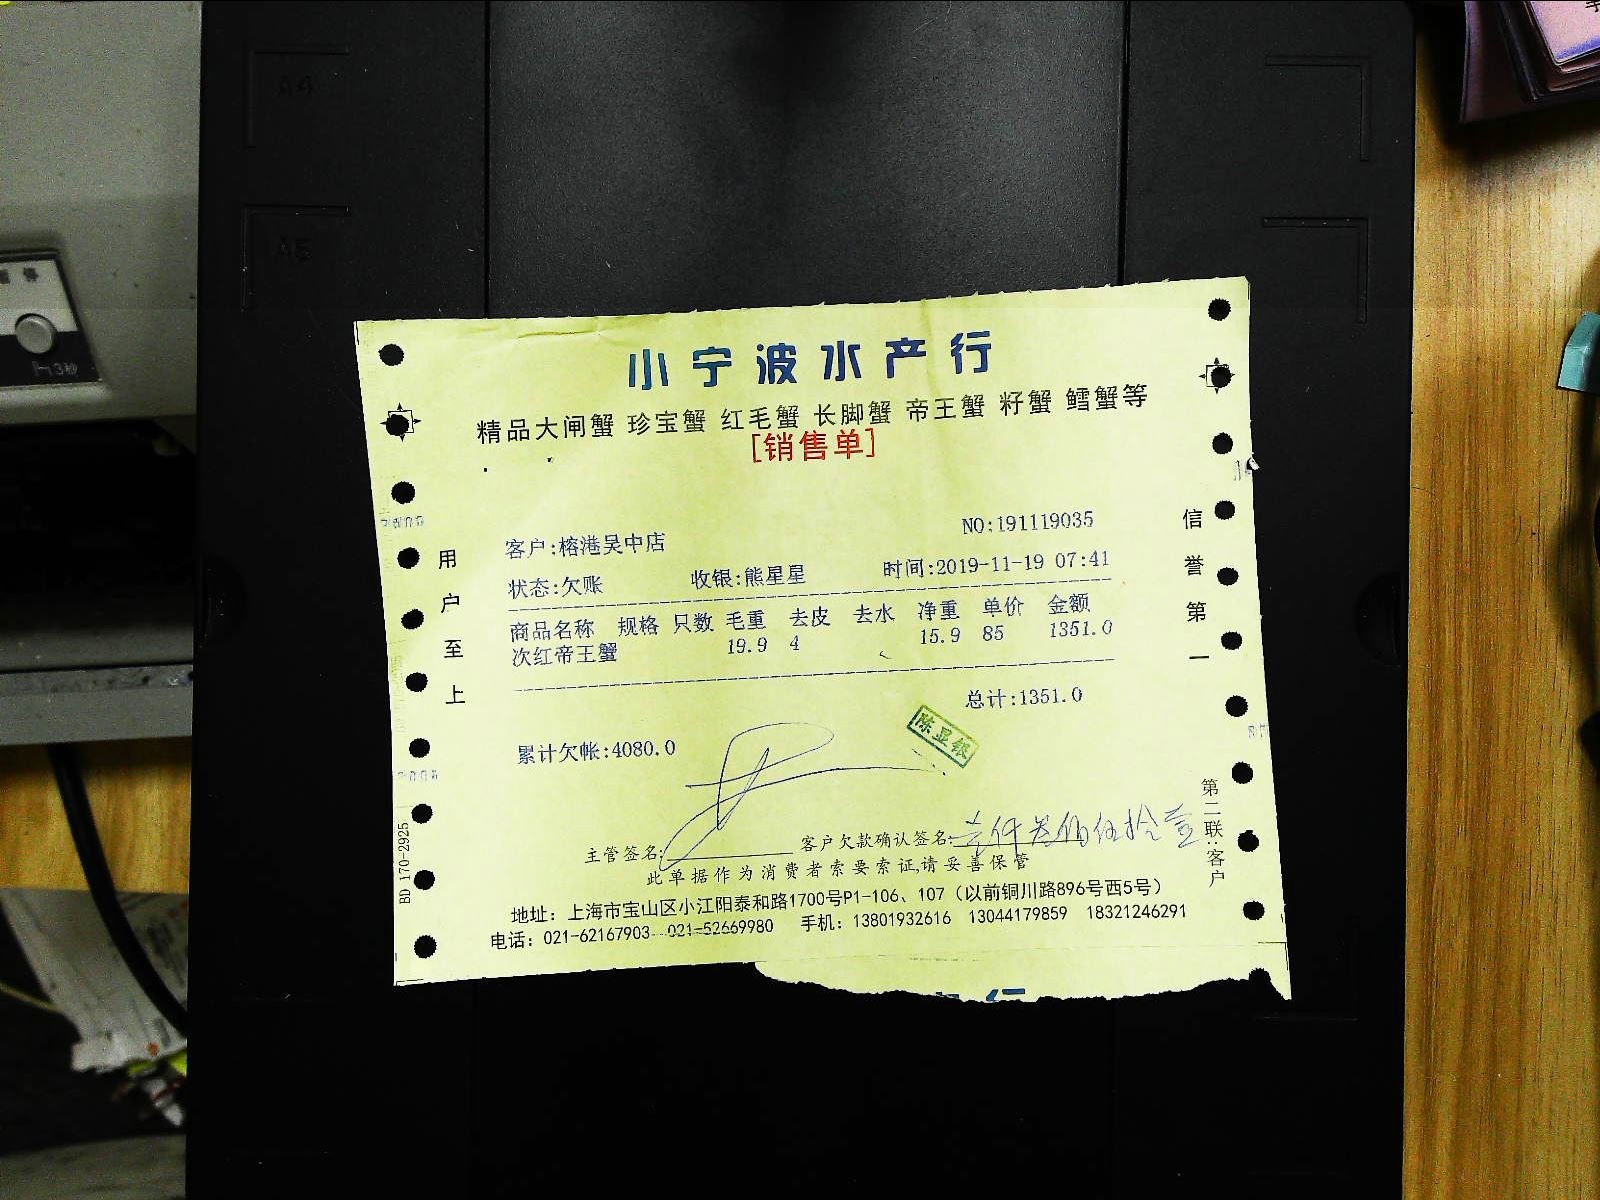 A4
A5
小宁波水产行
精品大闸蟹 珍宝蟹 红毛蟹 长脚蟹 帝王蟹 籽蟹 鳕蟹等
[销售单]
NO:191119035
客户:榕港吴中店
状态:欠账 收银:熊星星 时间:2019-11-19 07:41
商品名称 规格 只数 毛重 去皮 去水 净重 单价 金额
次红帝王蟹 19.9 4 15.9 85 1351.0
总计:1351.0
累计欠帐:4080.0
陈显银
主管签名: 客户欠款确认签名:壹仟叁佰伍拾壹
此单据作为消费者索要索证,请妥善保管
地址：上海市宝山区小江阳泰和路1700号P1-106、107（以前铜川路896号西5号）
电话：021-62167903 021-52669980 手机：13801932616 13044179859 18321246291
用户至上
信誉第一
第二联:客户
BD 170-2925
行